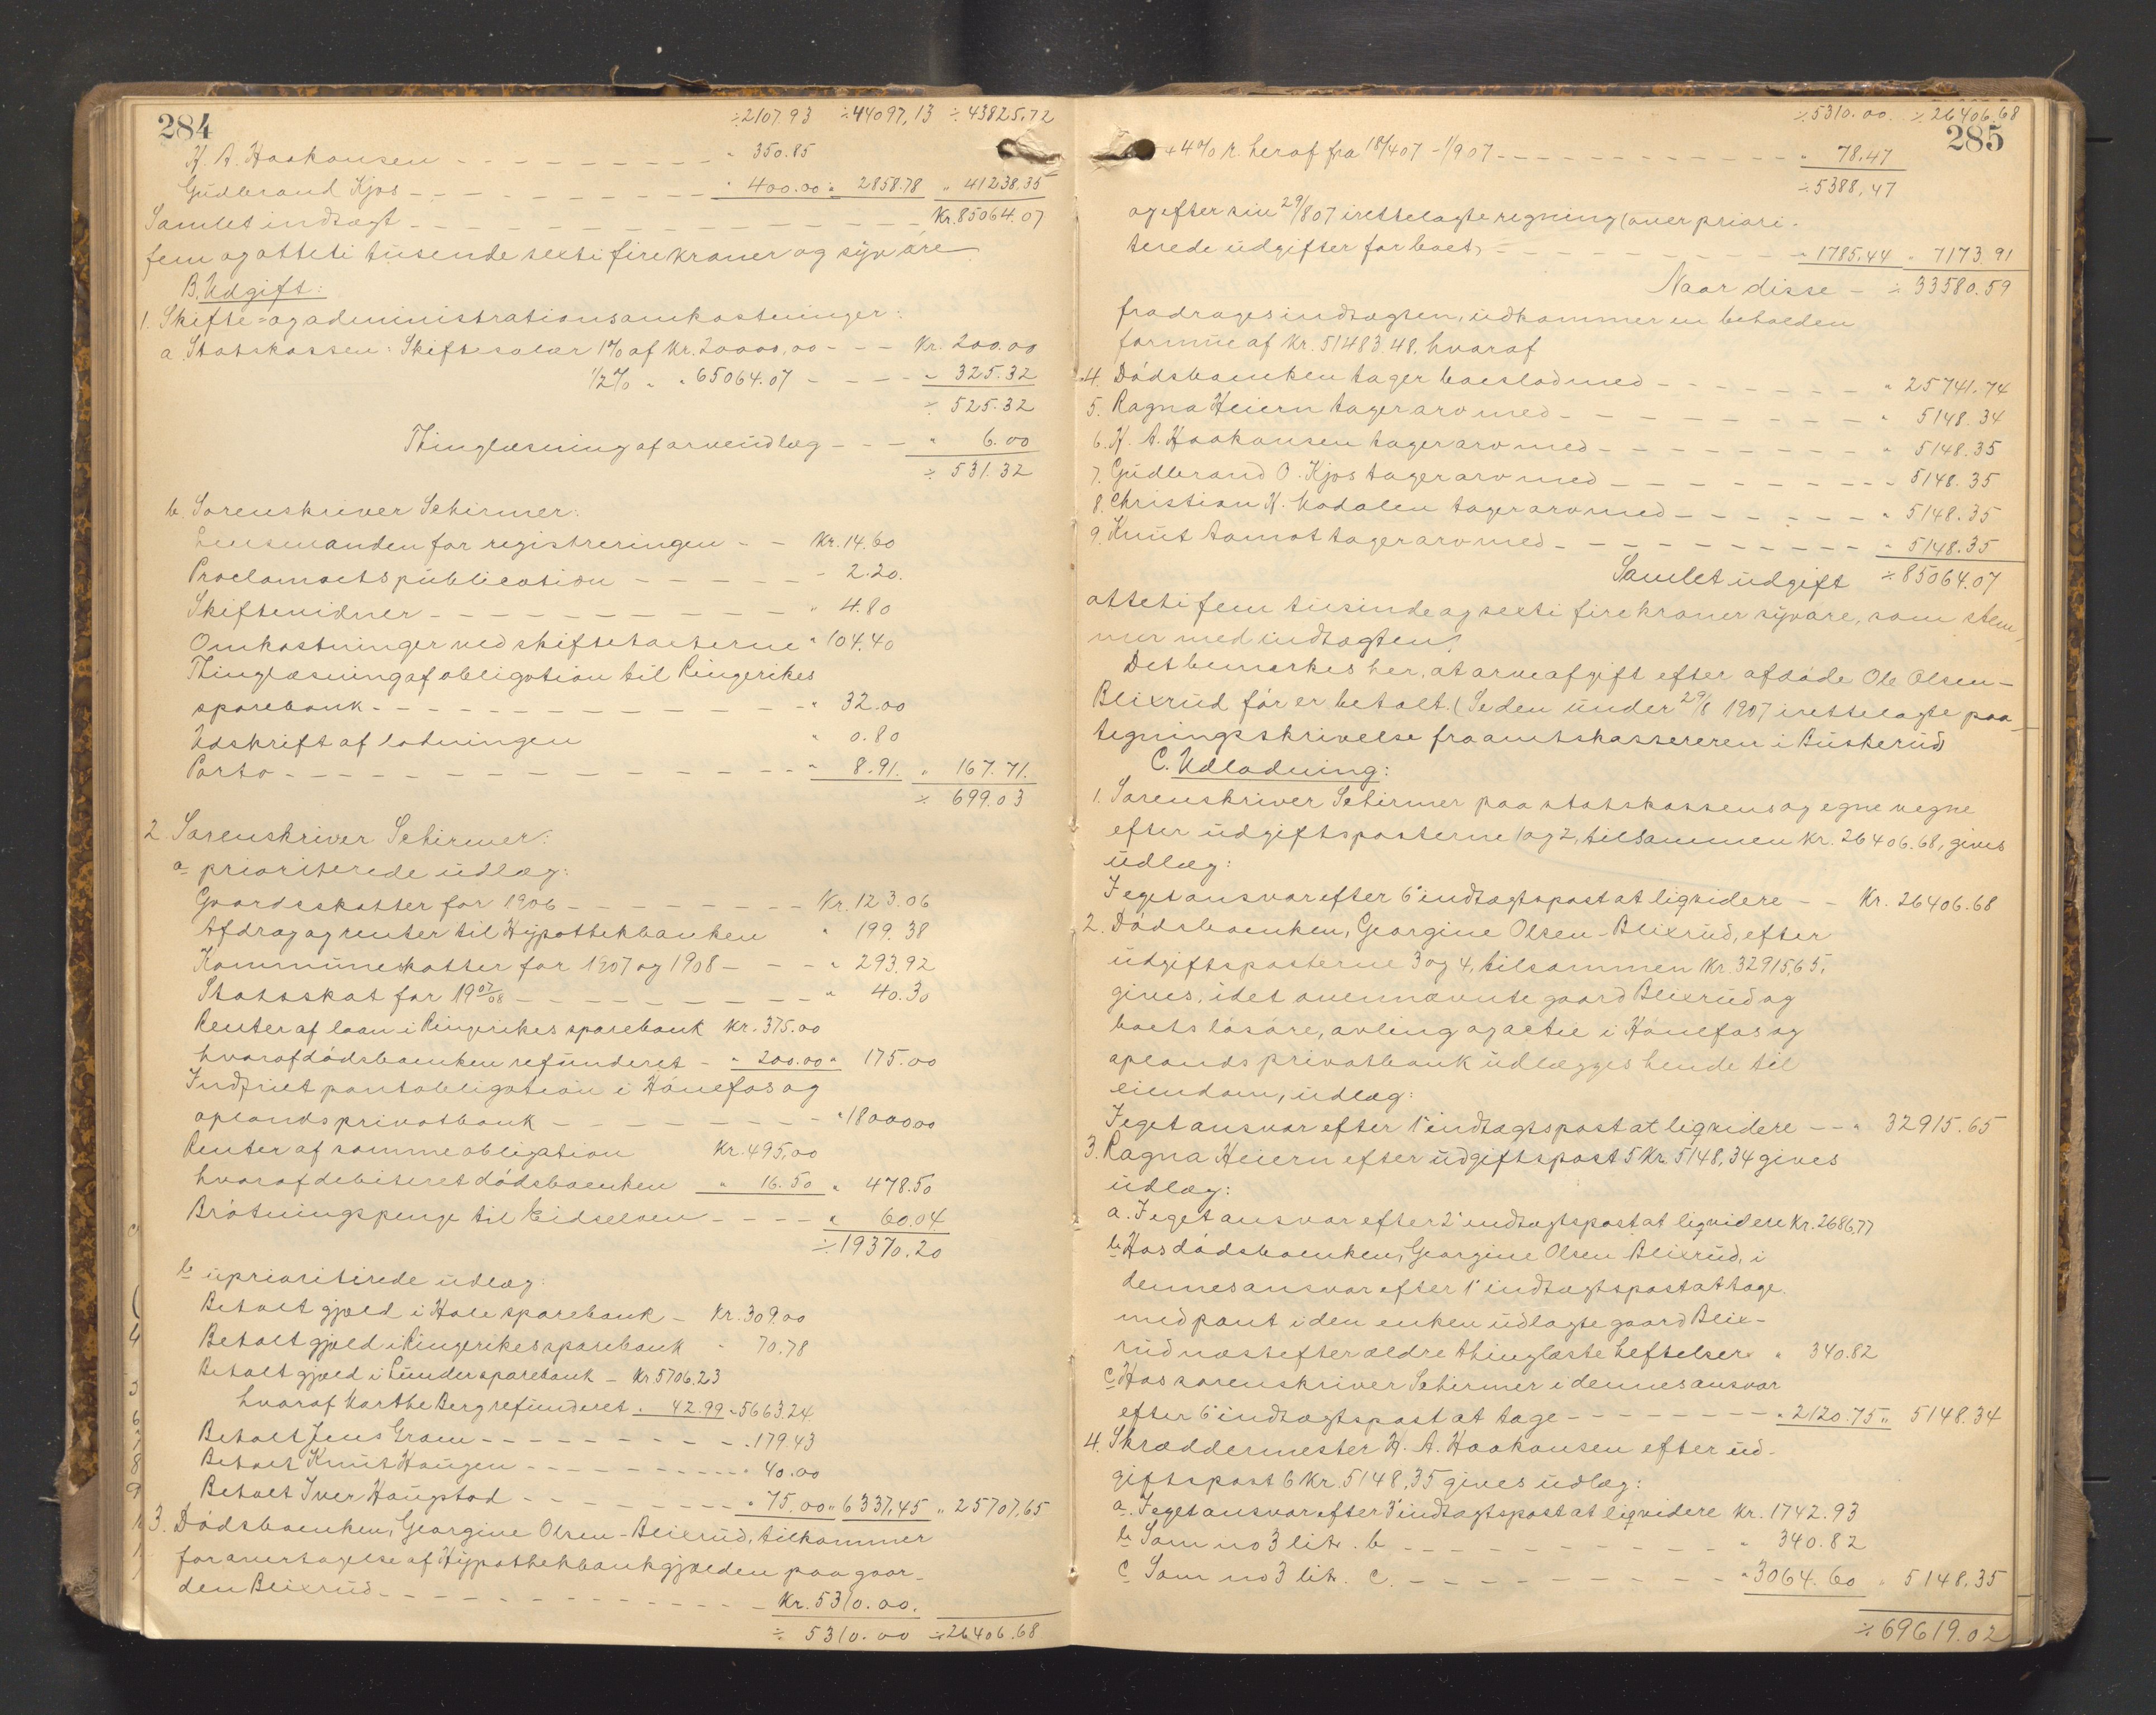 284
÷ 2107.93 ÷ 44097,13 ÷ 43825,72
K. A. Haakonsen - - - " 350.85
Gudbrand Kjos - - - " 400.00 " 2858.78 " 41238,35
Samlet indtægt - - - Kr. 85064.07
fem og otteti tusende sexti fire kroner og syv øre
B. Udgift:
1. Skifte- og administrationsomkostninger:
a Statskassen: Skiftesalær 1% af Kr. 20000,00 - - - Kr. 200.00
1/2% " " 65064.07 - - - " 325.32
÷ 525.32
Thinglæsning af arveudlæg - - - " 6.00
÷ 531.32
b. Sorenskriver Schirmer:
Lensmanden for registreringen - - Kr. 14.60
Proclamaets publication - - - " 2.20.
Skiftevidner - - - " 4.80
Omkostninger ved skiftetaksterne " 104.40
Thinglæsning af obligation til Ringerikes
sparebank - - - " 32.00
Udskrift af lodningen " 0.80
Porto - - - " 8.91. " 167.71.
÷ 699.03
2 Sorenskriver Schirmer:
a prioriterede udlæg:
Gaardsskatter for 1906 - - - Kr. 123.06
Afdrag og renter til Hypothekbanken " 199.38
Kommuneskatter for 1907 og 1908 - - - " 293.92
Statsskat for 1907/08 - - - " 40.30
Renter af laan i Ringerikes sparebank Kr. 375.00
hvoraf dødsboenken refunderet - " 200.00 " 175.00
Indfriet pantobligation i Hønefos og
oplands privatbank - - - " 18000.00
Renter af samme obligation Kr. 495,00
hvoraf debiteret dødsboenken " 16.50 " 478.50
Brøtningspenge til Eidselven - - - " 60.04
÷ 19370.20
b uprioriterede udlæg:
Betalt gjæld i Hole sparebank - Kr. 309.00
Betalt gjæld i Ringerikes sparebank " 70.78
Betalt gjæld i Lunder sparebank - Kr. 5706.23
hvoraf Marthe Berg refunderet " 42.99 " 5663.24
Betalt Jens Gram - - - " 179.43
Betalt Knut Haugen - - - " 40.00
Betalt Iver Haugstad - - - " 75.00 " 6337,45 " 25707,65
3. Dødsboenken, Georgine Olsen-Blixrud, tilkommer
for overtagelse af Hypothekbankgjælden paa gaar-
den Blixrud - - - Kr. 5310.00.
÷ 5310.00 ÷ 26406.68
285
÷ 5310.00. ÷ 26406.68
+ 4% r. heraf fra 18/4 07 - 1/9 07 - - - " 78.47
÷ 5388,47
og efter sin 29/8 07 irettelagte regning (over priori-
terede udgifter for boet) - - - " 1785.44 " 7173.91
Naar disse - ÷ 33580.59
fradrages indtægten, udkommer en beholden
formue af Kr. 51483.48, hvoraf
4. Dødsboenken tager boeslod med - - - " 25741.74
5. Ragna Heiern tager arv med - - - " 5148.34
6. K. A. Haakonsen tager arv med - - - " 5148.35
7. Gudbrand O. Kjos tager arv med - - - " 5148.35
8. Christian K. Modalen tager arv med - - - " 5148.35
9. Knut tager arv med - - - " 5148.35
Samlet udgift ÷ 85064.07
otteti fem tusinde og sexti fire kroner syv øre, som stem-
mer med indtægten.
Det bemerkes her, at arveafgift efter afdøde Ole Olsen-
Blixrud før er betalt. (Se den under 29/8 1907 irettelagte paa-
tegningsskrivelse fra amtskassereren i Buskerud
C. Udlodning:
1. Sorenskriver Schirmer paa statskassens og egne vegne
efter udgiftsposterne 1 og 2, tilsammen Kr. 26406.68, gives
udlæg:
I eget ansvar efter 6' indtægtspost at liqvidere - - Kr. 26406.68
2. Dødsboenken, Georgine Olsen-Blixrud, efter
udgiftsposterne 3 og 4, tilsammen Kr. 32915,65,
gives, idet ovennævnte gaard Blixrud og
boets løsøre, avling og actie i Hønefos og
oplands privatbank udlægges hende til
eiendom, udlæg:
I eget ansvar efter 1' indtægtspost at liqvidere - - " 32915.65
3. Ragna Heiern efter udgiftspost 5 Kr. 5148,34 gives
udlæg:
a. I eget ansvar efter 2' indtægtspost at liqvidere Kr. 2686,77
b Hos dødsboenken, Georgine Olsen Blixrud, i
dennes ansvar efter 1' indtægtspost at tage
med pant i den enken udlagte gaard Blix-
rud næst efter ældre thinglæste heftelser " 340.82
c Hos sorenskriver Schirmer i dennes ansvar
efter 6' indtægtspost at tage - - - " 2120.75 " 5148.34
4. Skræddermester K. A. Haakonsen efter ud-
giftspost 6 Kr. 5148,35 gives udlæg:
a. I eget ansvar efter 3' indtægtspost at liqvidere Kr. 1742.93
b Som no 3 litr. b - - - " 340.82
c Som no 3 litr. c. - - - " 3064.60 " 5148,35
÷ 69619.02